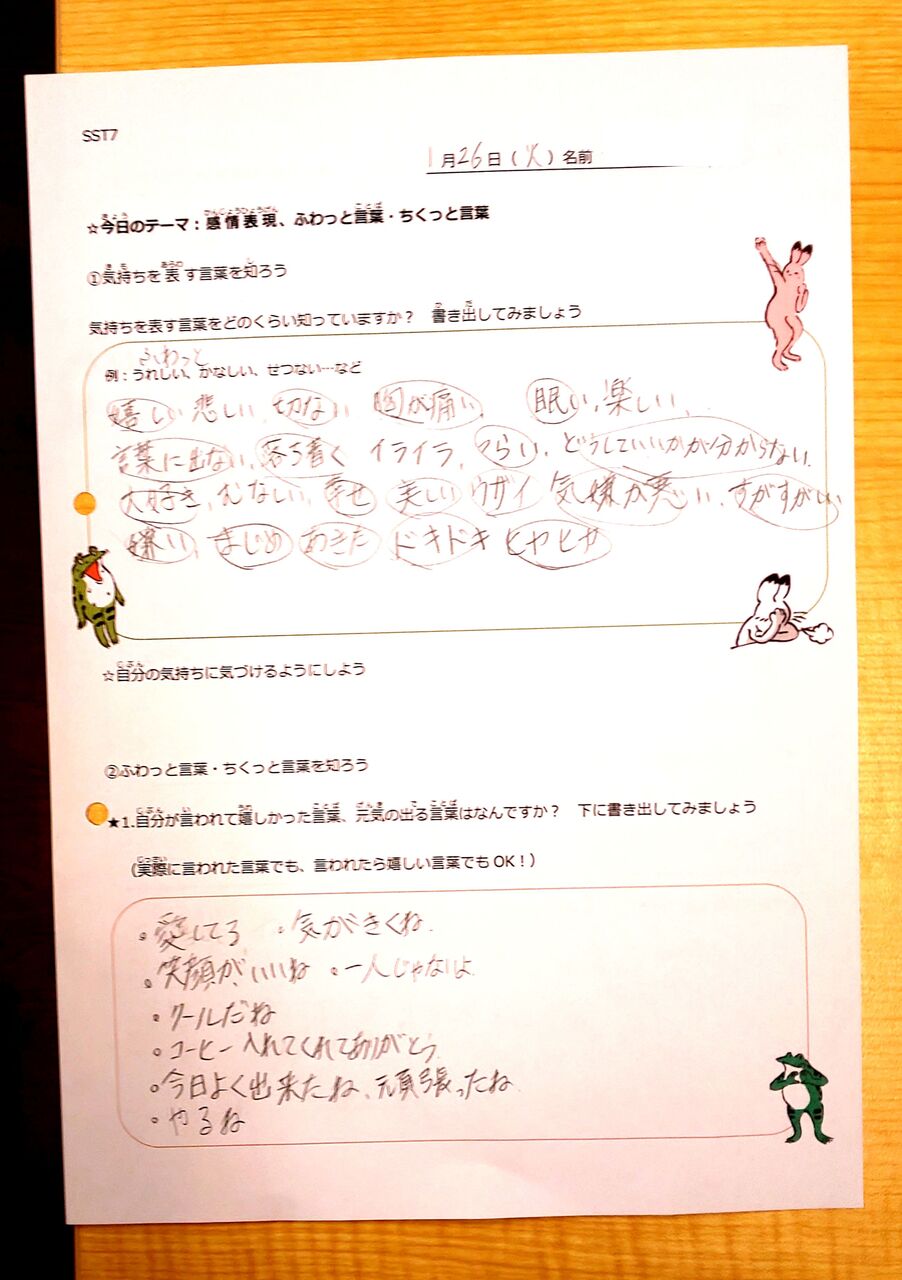 SST7
1月26日(火)名前
☆今日のテーマ：感情表現、ふわっと言葉・ちくっと言葉
①気持ちを表す言葉を知ろう
気持ちを表す言葉をどのくらい知っていますか？　書き出してみましょう
ふわっと
例：うれしい、かなしい、せつない…など
嬉しい 悲しい 切ない 胸が痛い、 眠い、楽しい、
言葉に出ない、落ち着く イライラ、つらい、どうしていいかが分からない、
大好き、むなしい、幸せ 美しい ウザイ 気嫌が悪い、すがすがしい
嫌い、まじめ あきた ドキドキ ヒヤヒヤ
☆自分の気持ちに気づけるようにしよう
②ふわっと言葉・ちくっと言葉を知ろう
★1.自分が言われて嬉しかった言葉、元気の出る言葉はなんですか？　下に書き出してみましょう
（実際に言われた言葉でも、言われたら嬉しい言葉でもOK！）
・愛してる ・気がきくね
・笑顔がいいね ・一人じゃないよ
・クールだね
・コーヒー入れてくれてありがとう
・今日よく出来たね、頑張ったね
・やるね